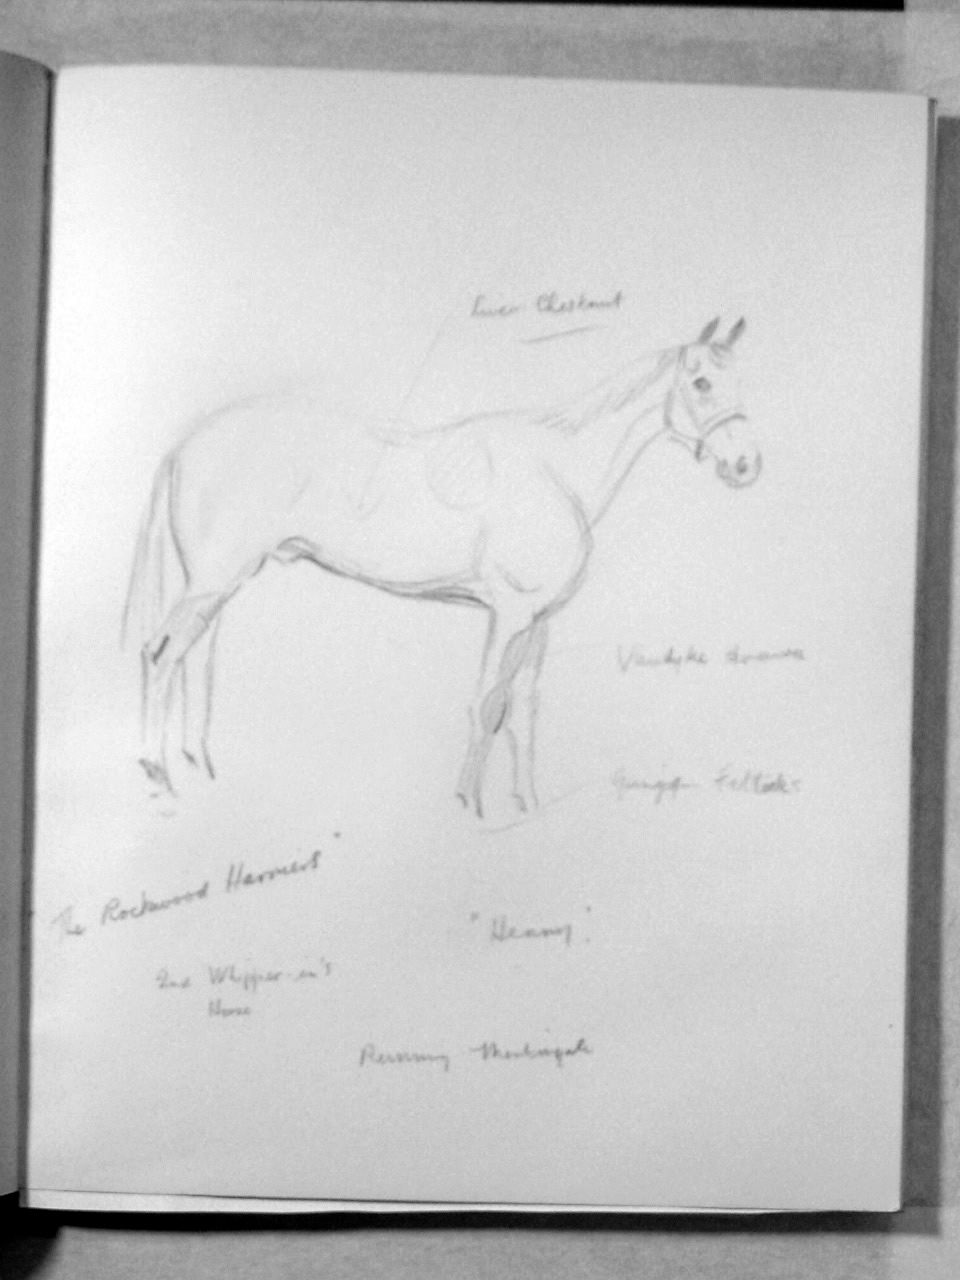 Liver Chestnut
Vandyke
Fetlocks
The Rockwood Harriers"
"Henny".
2nd Whipper-in's
Horse
Running Martingale